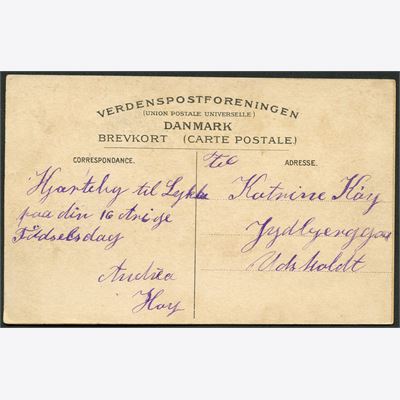 VERDENSPOSTFORENINGEN
(UNION POSTALE UNIVERSELLE)
DANMARK
BREVKORT (CARTE POSTALE.)
CORRESPONDANCE.
Til
ADRESSE.
Hjærtelig til Lykke
paa din 16 Arige
Födselsdag
Andrea
Høy
Katrine Høy
Udsholdt